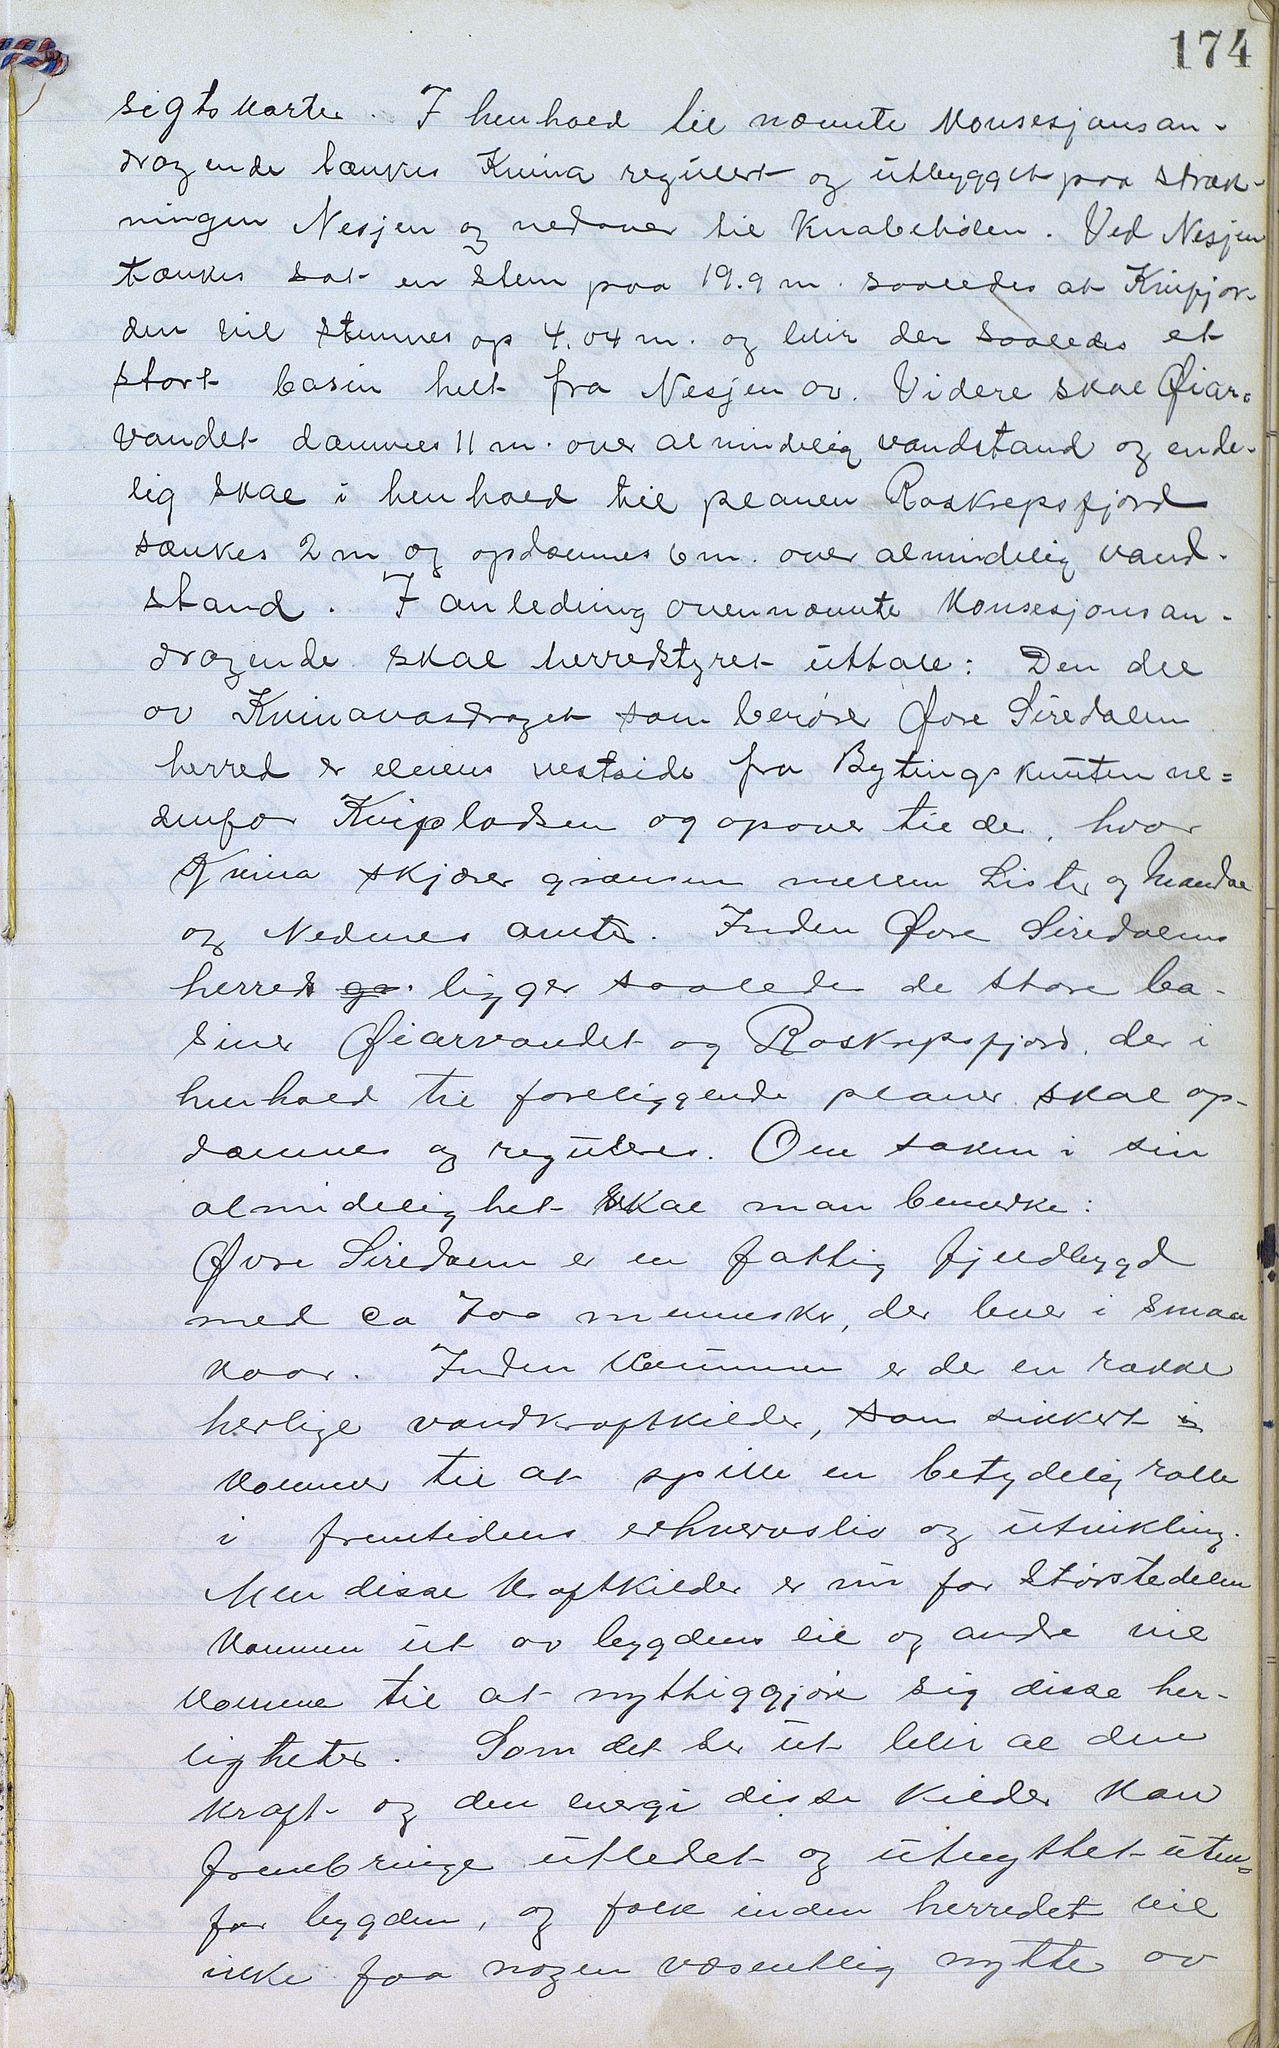 174
sigtskarter. I henhold til nævnte konsesjonsan-
dragende tænkes Kvina regulert og utbygget paa stræk-
ningen Nesjen og nedover til Knabehølen. Ved Nesjen
tænkes sat en stem paa 19.9 m. saaledes at Kvifjor-
den vil stemmes op 4.04 m. og blir der saaledes et
stort basin helt fra Nesjen av. Videre skal Øiar-
vandet dæmmes 11 m. over almindelig vandstand og ende-
lig skal i henhold til planen Roskrepsfjord
sænkes 2 m og opdæmmes 6 m. over almindelig vand-
stand. I anledning ovennævnte konsesjonsan-
dragende skal herredstyret uttale: Den del
av Kvinavasdraget som berører Øvre Siredalen
herred er elvens vestside fra Bytingsknuten ne=
denfor Kvipladsen og opover til der, hvor
Kvina skjærer grænsen mellem Lister og Mandal
og Nedenes amter. Inden Øvre Siredalens
herred ligger saaledes de store ba-
siner Øiarvandet og Roskrepsfjord, der i
henhold til foreliggende planer skal op-
dæmmes og reguleres. Om saken i sin
almindelighet skal man bemerke:
Øvre Siredalen er en fattig fjeldbygd
med ca 700 mennesker, der lever i smaa
kaar. Inden kommunen er der en række
herlige vandkraftkilder, som sikkert
kommer til at spille en betydelig rolle
i fremtidens erhvervsliv og utvikling.
Men disse kraftkilder er nu for størstedelen
kommen ut av bygdens eie og andre vil
komme til at nyttiggjøre sig disse her-
ligheter. Som det ser ut blir al den
kraft og den energi disse kilder kan
frembringe utledet og utnyttet uten=
for bygden, og folk inden herredet vil
ikke faa nogen væsentlig nytte av